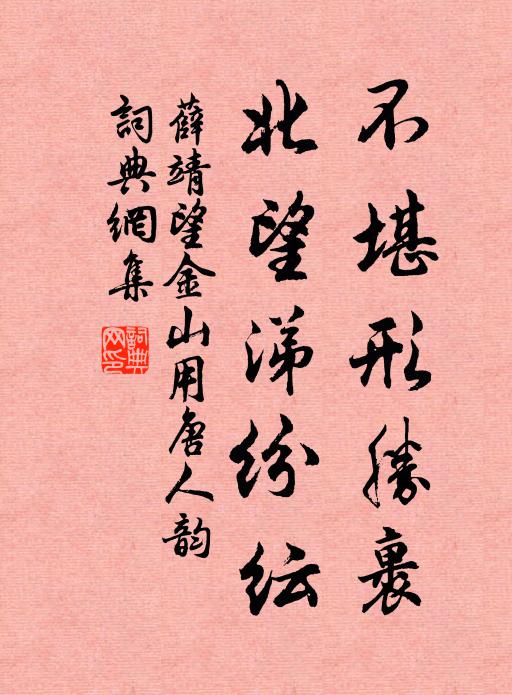 不堪形勝裏
北望涕紛紜
薛靖望金山用唐人韵
詞典網集
詞典网印